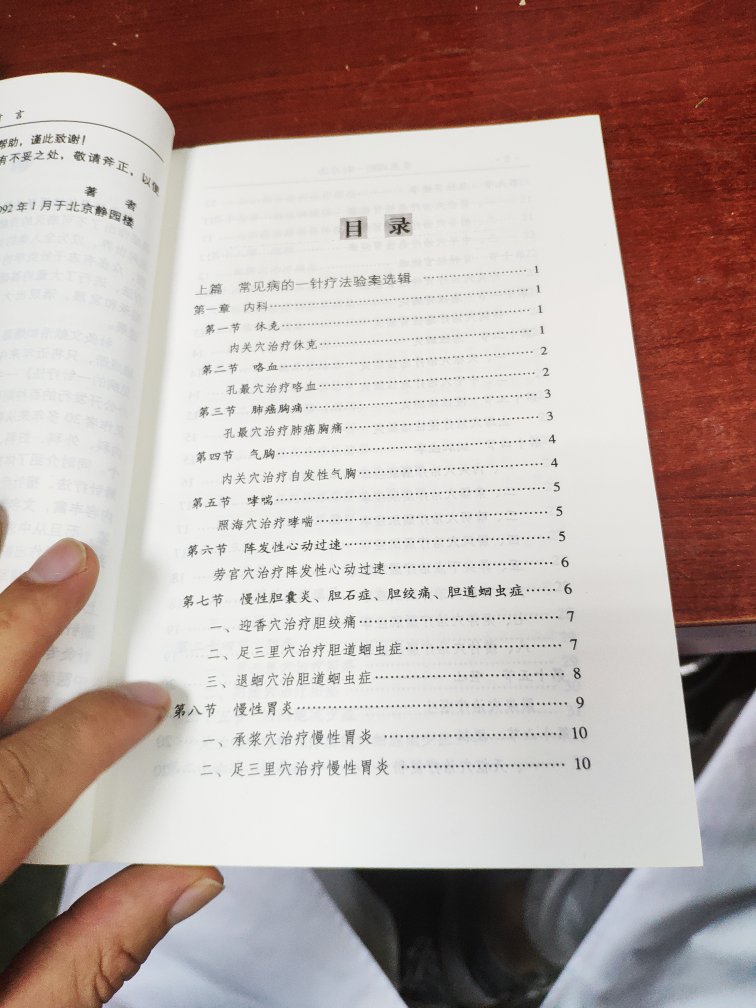 言
帮助，谨此致谢！
有不妥之处，敬请斧正，以便
著 者
992年1月于北京静园楼
目 录
上篇 常见病的一针疗法验案选辑 …………… 1
第一章 内科…………………………………… 1
第一节 休克…………………………………… 1
内关穴治疗休克……………………………… 1
第二节 咯血…………………………………… 2
孔最穴治疗咯血……………………………… 2
第三节 肺癌胸痛……………………………… 3
孔最穴治疗肺癌胸痛………………………… 3
第四节 气胸…………………………………… 4
内关穴治疗自发性气胸……………………… 4
第五节 哮喘…………………………………… 5
照海穴治疗哮喘……………………………… 5
第六节 阵发性心动过速……………………… 5
劳宫穴治疗阵发性心动过速………………… 6
第七节 慢性胆囊炎、胆石症、胆绞痛、胆道蛔虫症…… 6
一、迎香穴治疗胆绞痛……………………… 7
二、足三里穴治疗胆道蛔虫症……………… 7
三、退蛔穴治胆道蛔虫症…………………… 8
第八节 慢性胃炎……………………………… 9
一、承浆穴治疗慢性胃炎 ………………… 10
二、足三里穴治疗慢性胃炎 ……………… 10